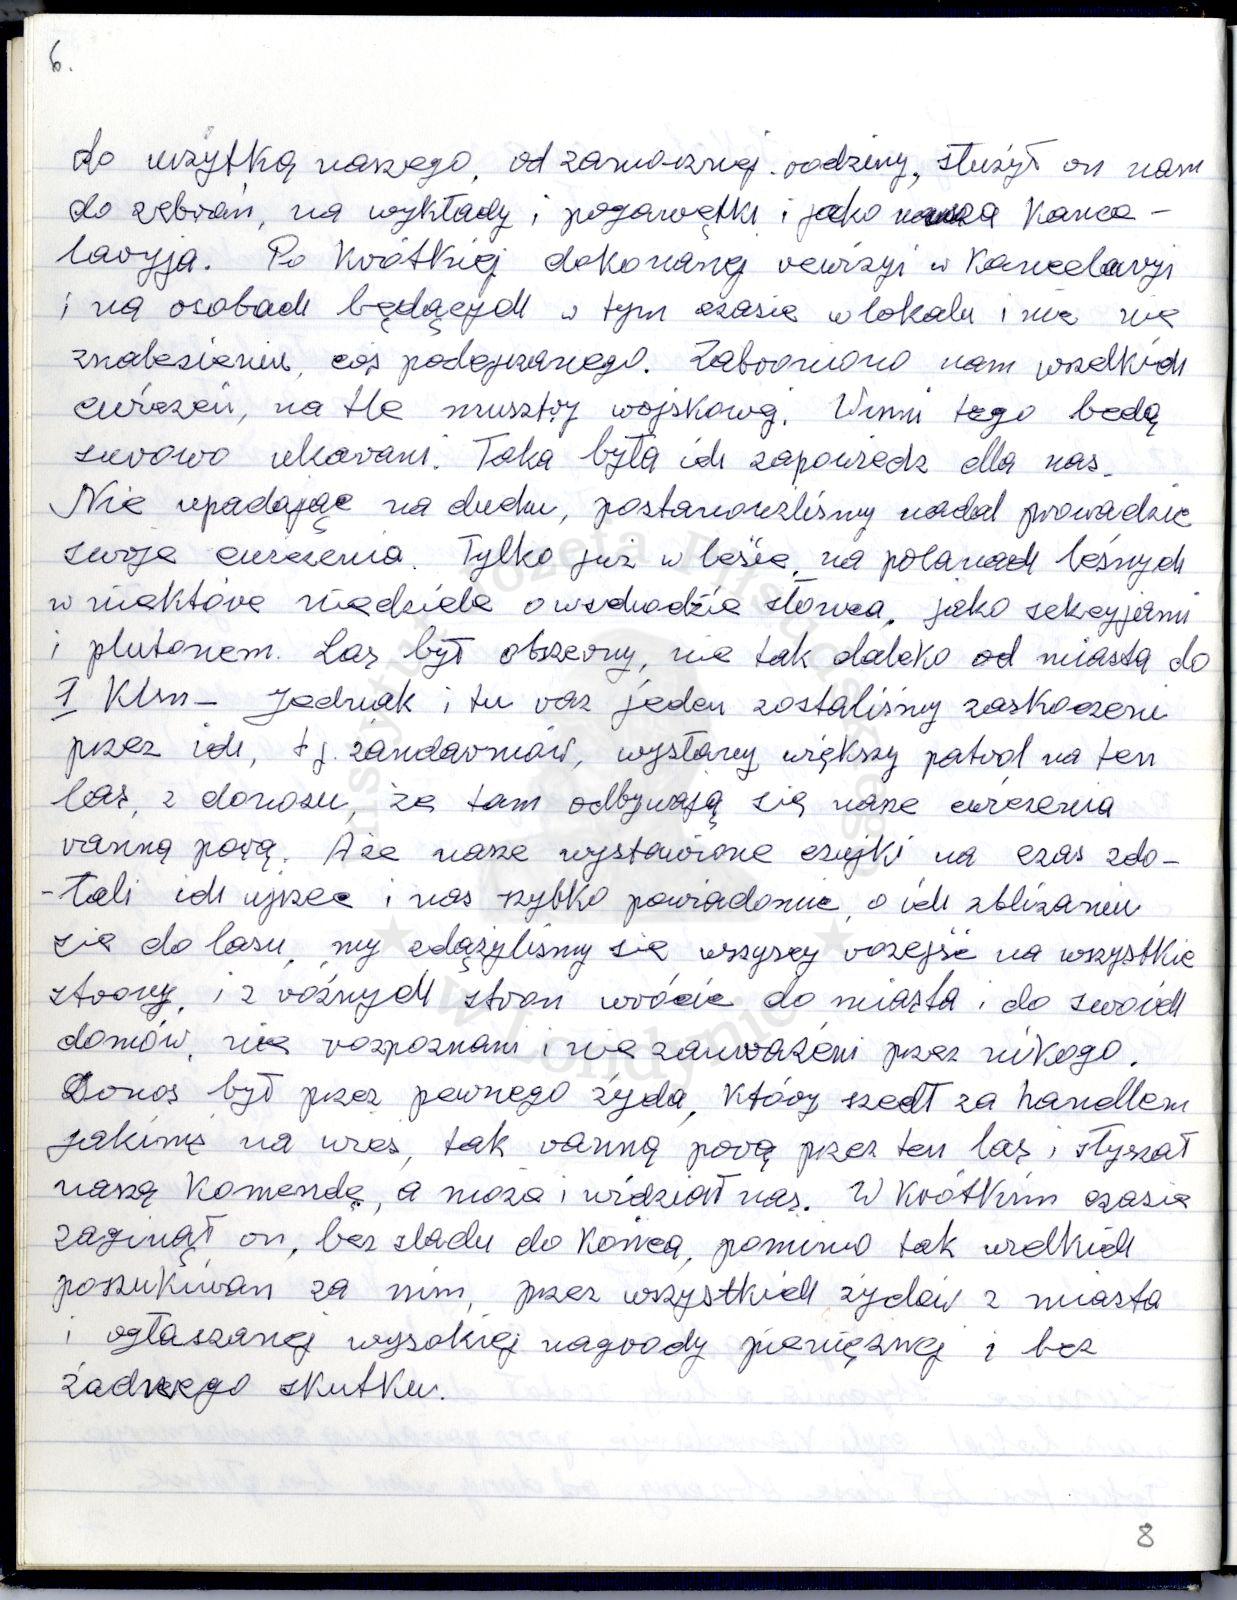 6.
do użytką naszego, od zamożnej rodziny, służył on nam
do zębrań, na wykłady i pogawętki i jako nasza Kance-
laryja. Po krótkiej dokonanej rewizyi w Kancelaryi
i na osobach będących w tym czasie w lokalu i nie nie
znalezieniu, coś podejrzanego. Zabroniono nam wszelkich
ćwiczeń, na tle musztry wojskowej. Winni tego będą
surowo ukarani. Taka była ich zapowiedz dlla nas.
Nie upadając na duchu, postanowiliśmy nadal prowadzić
swoje ćwiczenia. Tylko już w lesie, na polanach leśnych
w niektóre niedziele o wschodzie słońca, jako sekcyjami
i plutonem. Las był obszerny, nie tak daleko od miasta do
1 Klm – Jednak i tu raz jeden zostaliśmy zaskoczeni
przez ich, t j. żandarmów, wysłany większy patrol na ten
las, z donosu, że tam odbywają się nasze ćwiczenia
ranną porą. Aże nasze wystawione czujki na czas zdo-
-łali ich ujrzeć i nas szybko powiadomić, o ich zbliżaniu
się do lasu, my zdążyliśmy się wszyscy rozejść na wszystkie
strony, i z różnych stron wrócić do miasta i do swoich
domów, nie rozpoznani i nie zauważeni przez nikogo.
Donos był przez pewnego żyda, który szedł za handlem
jakimś na wieś, tak ranną porą przez ten las i słyszał
naszą Komendę, a może i widział nas. W krótkim czasie
zaginął on, bez sladu do Końca, pomimo tak wielkich
poszukiwan za nim, przez wszystkich żydów z miasta
i ogłaszanej wysokiej nagrody pieniężnej i bez
żadnego skutku.
8
Instytut Józefa Piłsudskiego
★ w Londynie ★